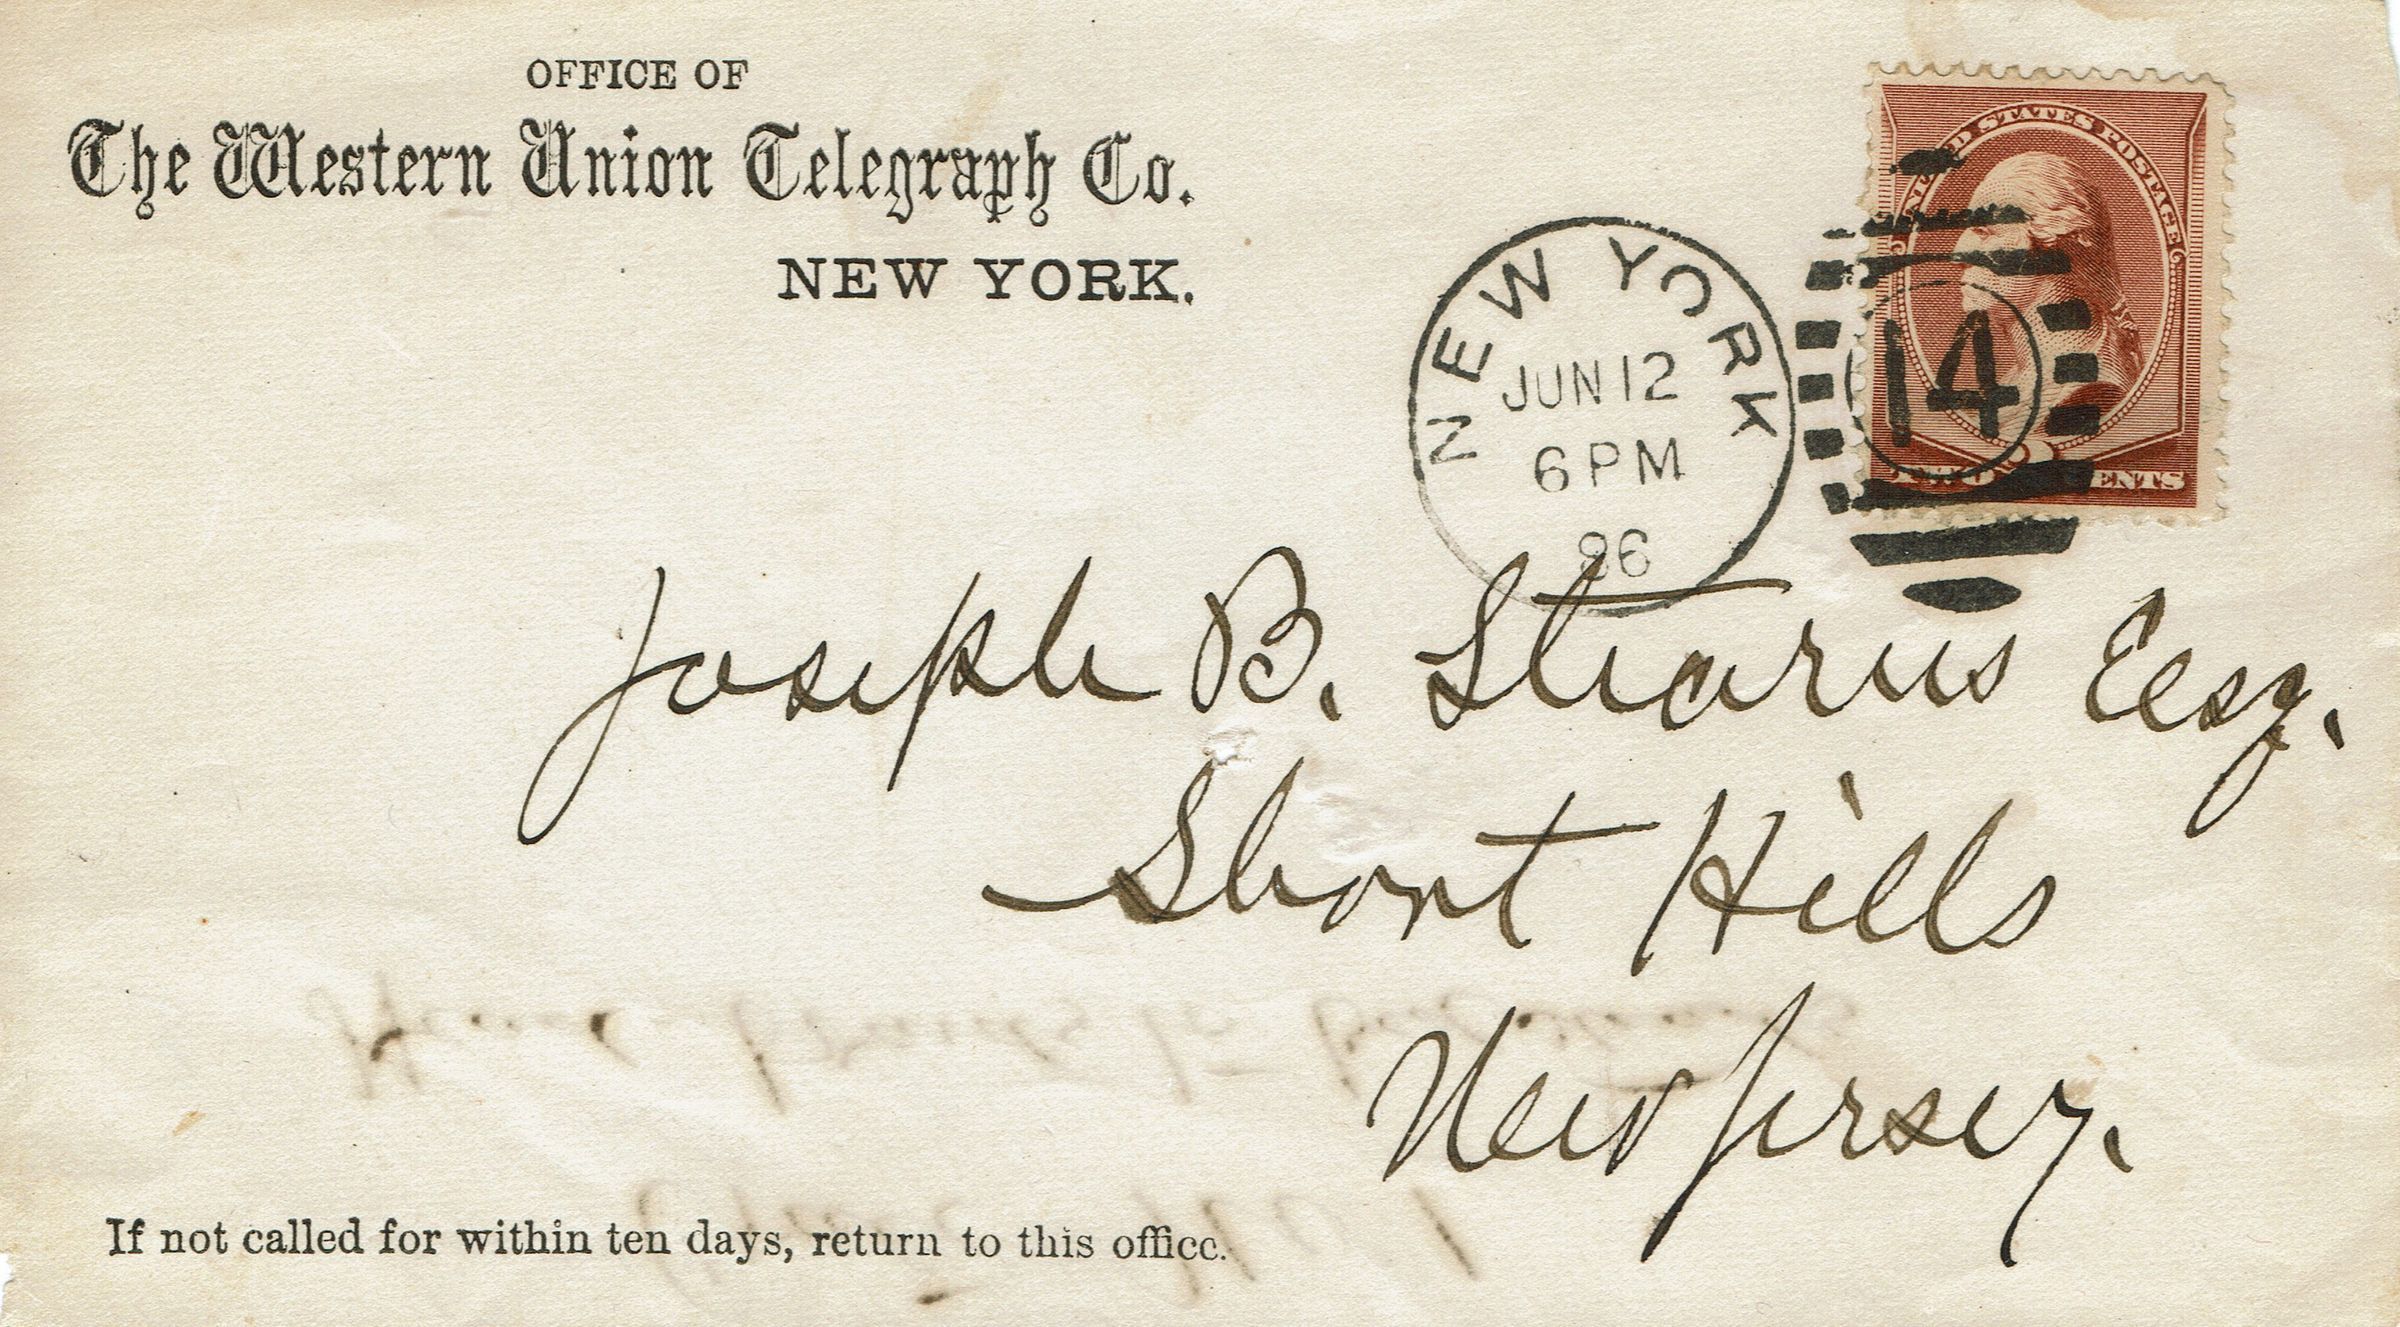 OFFICE OF
The Western Union Telegraph Co.
NEW YORK.
UNITED STATES POSTAGE
TWO CENTS
NEW YORK
JUN 12
6 PM
86
14
Joseph B. Stearns Esq.
Short Hills
New Jersey.
If not called for within ten days, return to this office.